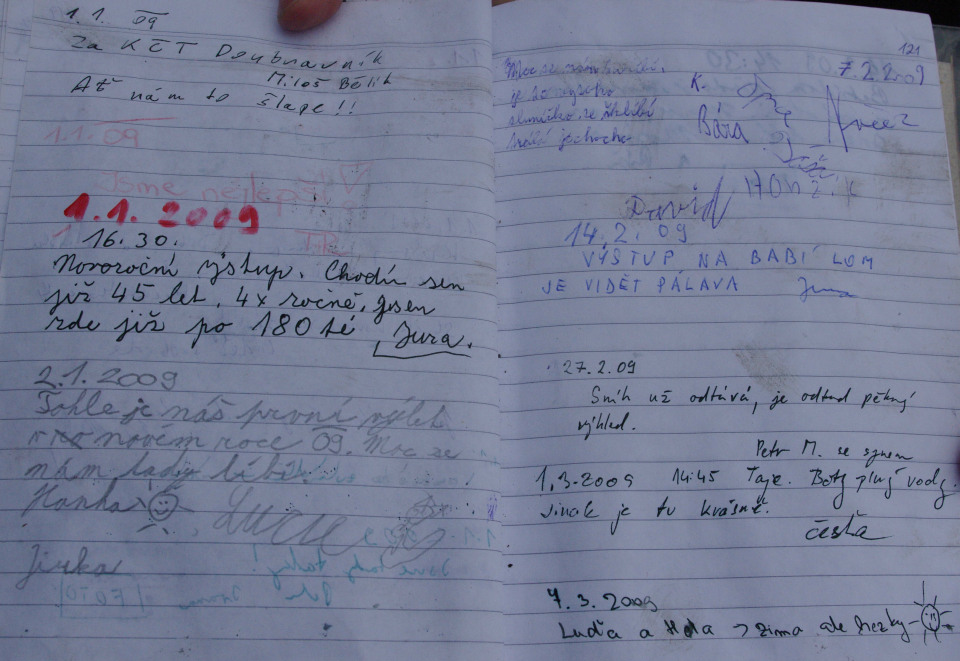 1.1. 09
Za KČT Doubravník
Miloš Bělík
Ať nám to šlape!!
1.1. 09
Jsme nejlepší
1.1.2009
16.30.
Novoroční výstup. Chodím sem
již 45 let. 4x ročně, jsem
zde již po 180 té Jura.
2.1.2009
Tohle je náš první výlet
v novém roce 09. Moc se
nám tady líbí
Hanka
Lucie
Jirka
121
7.2.2009
Moc se nám
je to
sluníčko se
K.
Bára
Honzík
David
14.2.09
VÝSTUP NA BABÍ LOM
JE VIDĚT PÁLAVA Jura
27.2.09
Sníh už odtává, je odtud pěkný
výhled.
Petr M. se synem
1.3.2009 14:45 Taje. Boty plný vody.
Jinak je tu krásně.
Česťa
7.3.2009
Luďa a → zima ale hezky